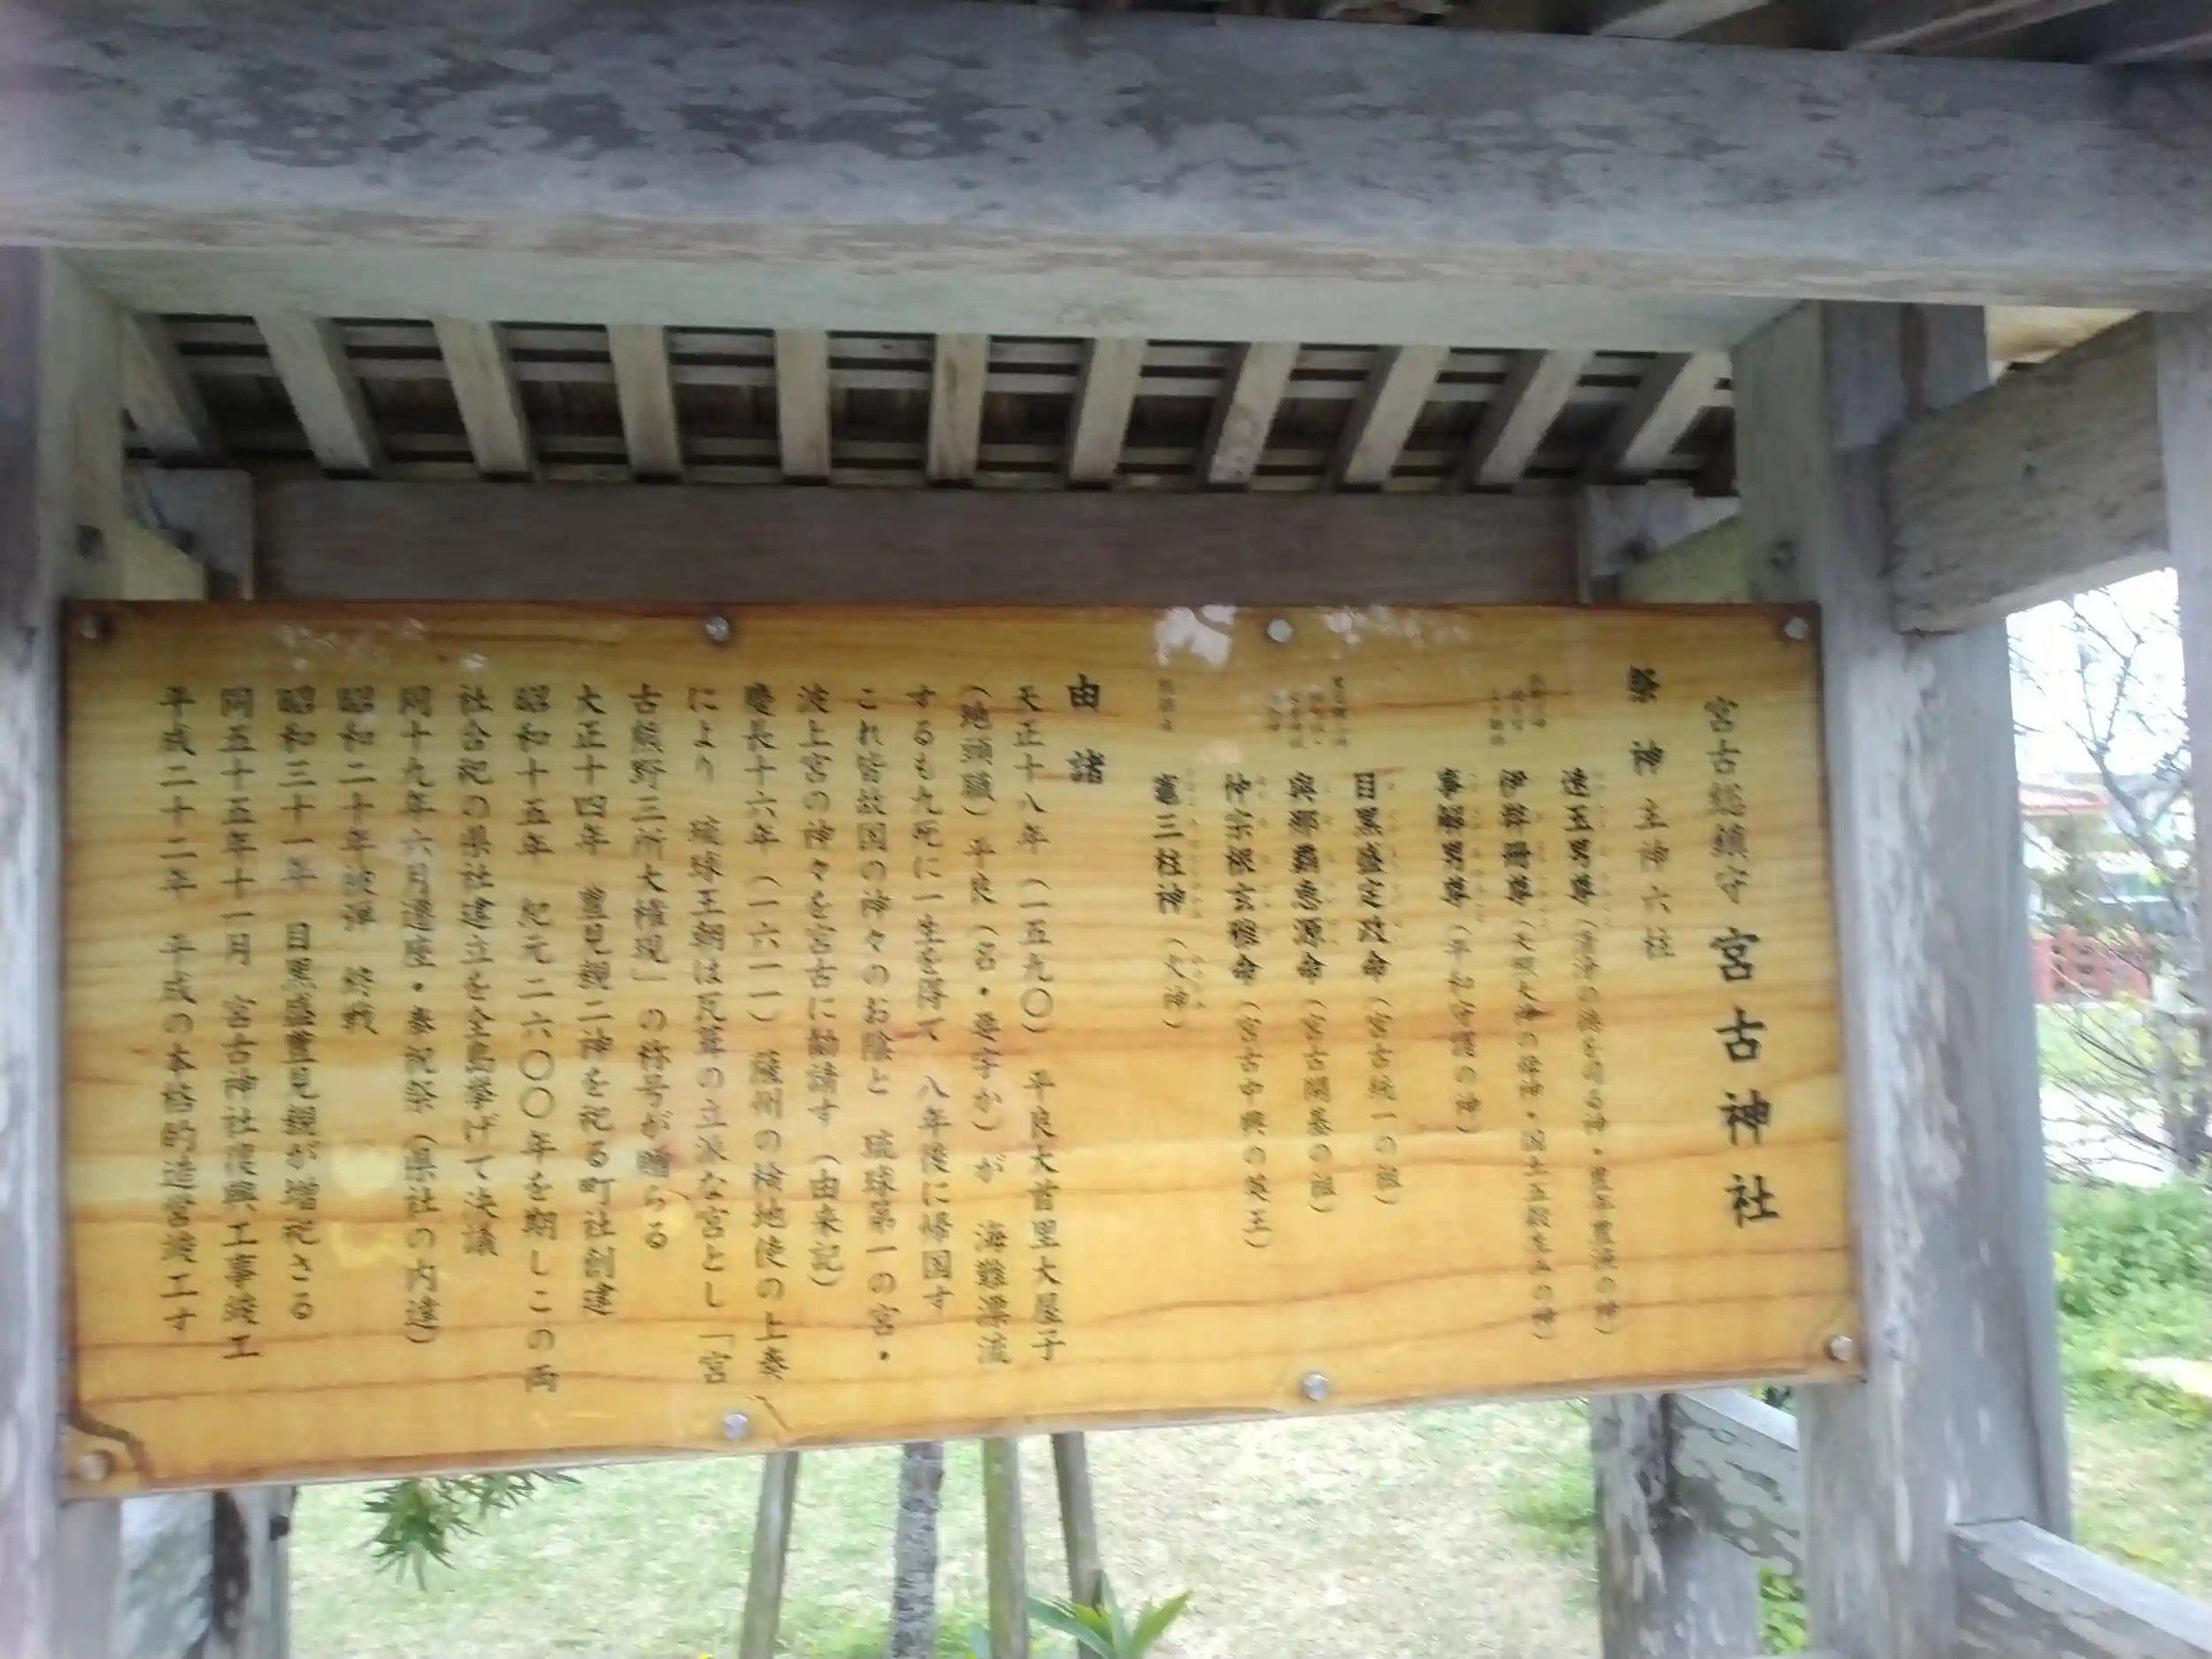 宮古総鎮守 宮古神社
祭神 主神六柱
速玉男尊
伊弉冊尊
事解男尊（平和守護の神）
目黒盛定政命（宮古統一の祖）
與那覇恵源命（宮古開基の祖）
仲宗根玄雅命（宮古中興の英王）
竈三柱神（火神）
由諸
天正十八年（一五九〇） 平良大首里大屋子
（地頭職）平良（名・童字か）が 海難漂流
するも九死に一生を得て 八年後に帰国す
これ皆故国の神々のお陰と 琉球第一の宮・
波上宮の神々を宮古に勧請す（由来記）
慶長十六年（一六一一） 薩州の検地使の上奏
により 琉球王朝は瓦葺の立派な宮とし「宮
古熊野三所大権現」の称号が贈らる
大正十四年 豊見親二神を祀る町社創建
昭和十五年 紀元二六〇〇年を期しこの両
社合祀の県社建立を全島挙げて決議
同十九年六月遷座・奉祝祭（県社の内達）
昭和二十年被弾 終戦
昭和三十一年 目黒盛豊見親が増祀さる
同五十五年十一月 宮古神社復興工事竣工
平成二十二年 平成の本格的造営竣工す